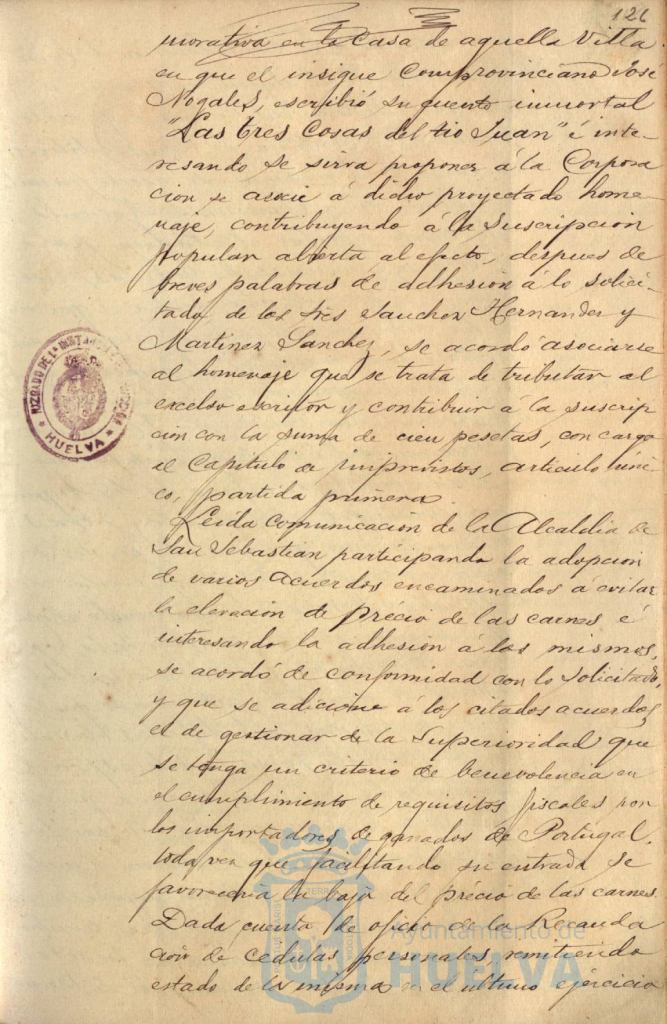 126
morativa en la Casa de aquella Villa
en que el insigne Comprovinciano José
Nogales, escribió su cuento inmortal
"Las tres Cosas del tio Juan" é inte-
resando se sirva proponer á la Corpora
cion se asocie á dicho proyectado home-
naje, contribuyendo á la Suscripcion
popular abierta al efecto, despues de
breves palabras de adhesion á lo solici-
tado, de los Sres Sanchez Hernandez y
Martinez Sanchez, se acordó asociarse
al homenaje que se trata de tributar al
excelso escritor y contribuir á la suscrip
cion con la suma de cien pesetas, con cargo
al Capitulo de imprevistos, articulo úni-
co, partida primera.
Leida comunicacion de la Alcaldia de
San Sebastian participando la adopcion
de varios acuerdos encaminados á evitar
la elevacion de précio de las carnes é
interesando la adhesion á los mismos,
se acordó de conformidad con lo Solicitado,
y que se adicione á los citados acuerdos
el de gestionar de la Superioridad que
se tenga un criterio de benevolencia en
el cumplimiento de requisitos fiscales por
los importadores de ganados de Portugal,
toda vez que facilitando su entrada se
favoreceria la baja del précio de las carnes.
Dada cuenta de oficio de la Recauda
ción de cedulas personales, remitiendo
estado de la misma en el ultimo ejercicio
HUELVA
Ayuntamiento de
HUELVA